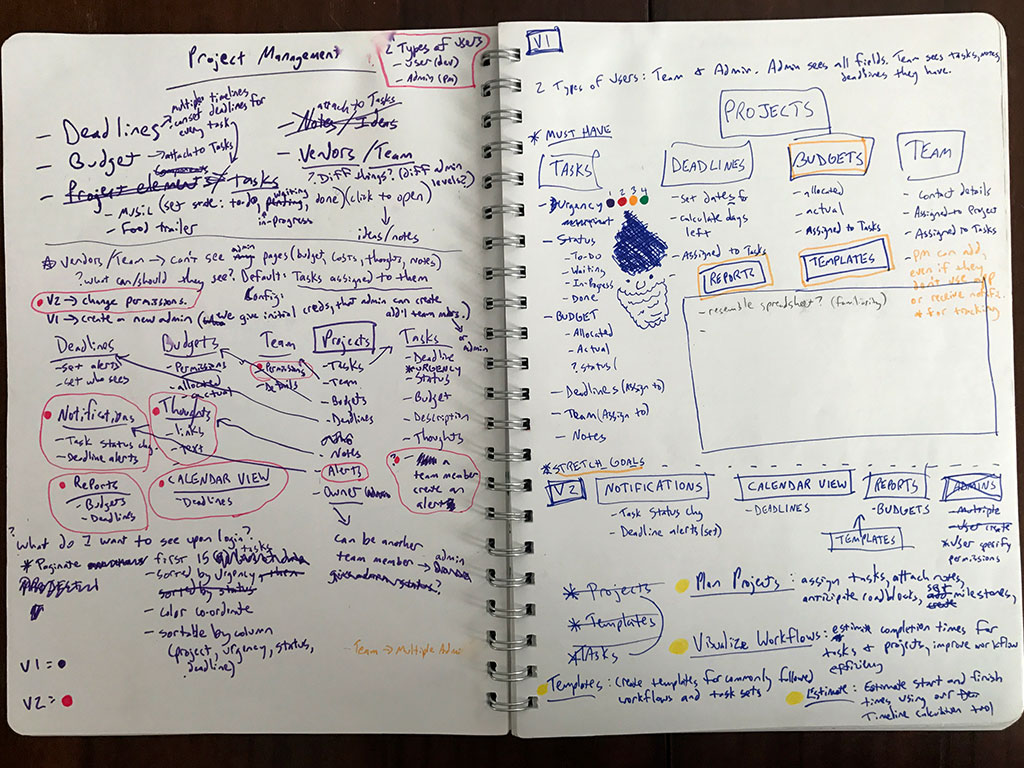 Project Management
2 Types of users
- User (dev)
- Admin (pm)
multiple timelines
unset deadlines for
every task
- Deadlines
- Budget → attach to Tasks
components
- Project elements / Tasks
- Music (set state: to do, waiting, done) (click to open)
in-progress
- Food trailer
attach to Tasks
- Notes / Ideas
- Vendors / Team
? Diff things? (Diff admin
levels?)
ideas/notes
* Vendors / Team → Can't see admin pages (budget, costs, thoughts, notes)
? what can/should they see? Default: Tasks assigned to them
Config:
V2 → change permissions.
V1 → create a new admin (we give initial creds, that admin can create
add'l team mbrs.)
or
admin
Deadlines
- set alerts
- set who sees
Budgets
- Permissions
- allocated
- actual
Team
- Permissions
- Details
Projects
- Tasks
- Team
- Budgets
- Deadlines
- Notes
- Alerts
- Owner
Tasks
- Deadline
* URGENCY
- Status
- Budget
- Description
- Thoughts
? - a
team member
create an
alert
Notifications
- Task Status chg.
- Deadline alerts
Thoughts
- links
- text
-
Reports
- Budgets
- Deadlines
CALENDAR VIEW
- Deadlines
can be another
team member → admin
given admin status?
? What do I want to see upon login?
* Paginate first 15 tasks
- sorted by Urgency, then
sorted by status
- color co-ordinate
- sortable by column
(project, urgency, status,
deadline)
- Team → Multiple Admin
V1 =
V2 =
V1
2 Types of Users: Team & Admin. Admin sees all fields. Team sees tasks, notes,
deadlines they have.
PROJECTS
* MUST HAVE
TASKS
- Urgency
1 2 3 4
- Status
- To-Do
- Waiting
- In-Progress
- Done
- BUDGET
- Allocated
- Actual
? status (
- Deadlines (Assign to)
- Team (Assign to)
- Notes
DEADLINES
- set dates for
- calculate days
left
- Assigned to Tasks
BUDGETS
- allocated
- actual
- Assigned to Tasks
TEAM
- Contact details
- Assigned to Project
- Assigned to Tasks
- PM can add,
even if they
don't use app
or receive notifs.
* for tracking
REPORTS
TEMPLATES
- resemble spreadsheet? (familiarity)
-
* STRETCH GOALS
V2
NOTIFICATIONS
- Task Status chg
- Deadline alerts (set)
CALENDAR VIEW
- DEADLINES
REPORTS
- BUDGETS
TEMPLATES
ADMINS
- Multiple
- User create
* User specify
permissions
* Projects
* Templates
* Tasks
Plan Projects: assign tasks, attach notes,
anticipate roadblocks, set milestones,
create
Visualize Workflows: estimate completion times for
tasks & projects, improve workflow
efficiency
Templates: Create templates for commonly followed
workflows and task sets
Estimate: Estimate start and finish
times using our
Timeline calculation tool